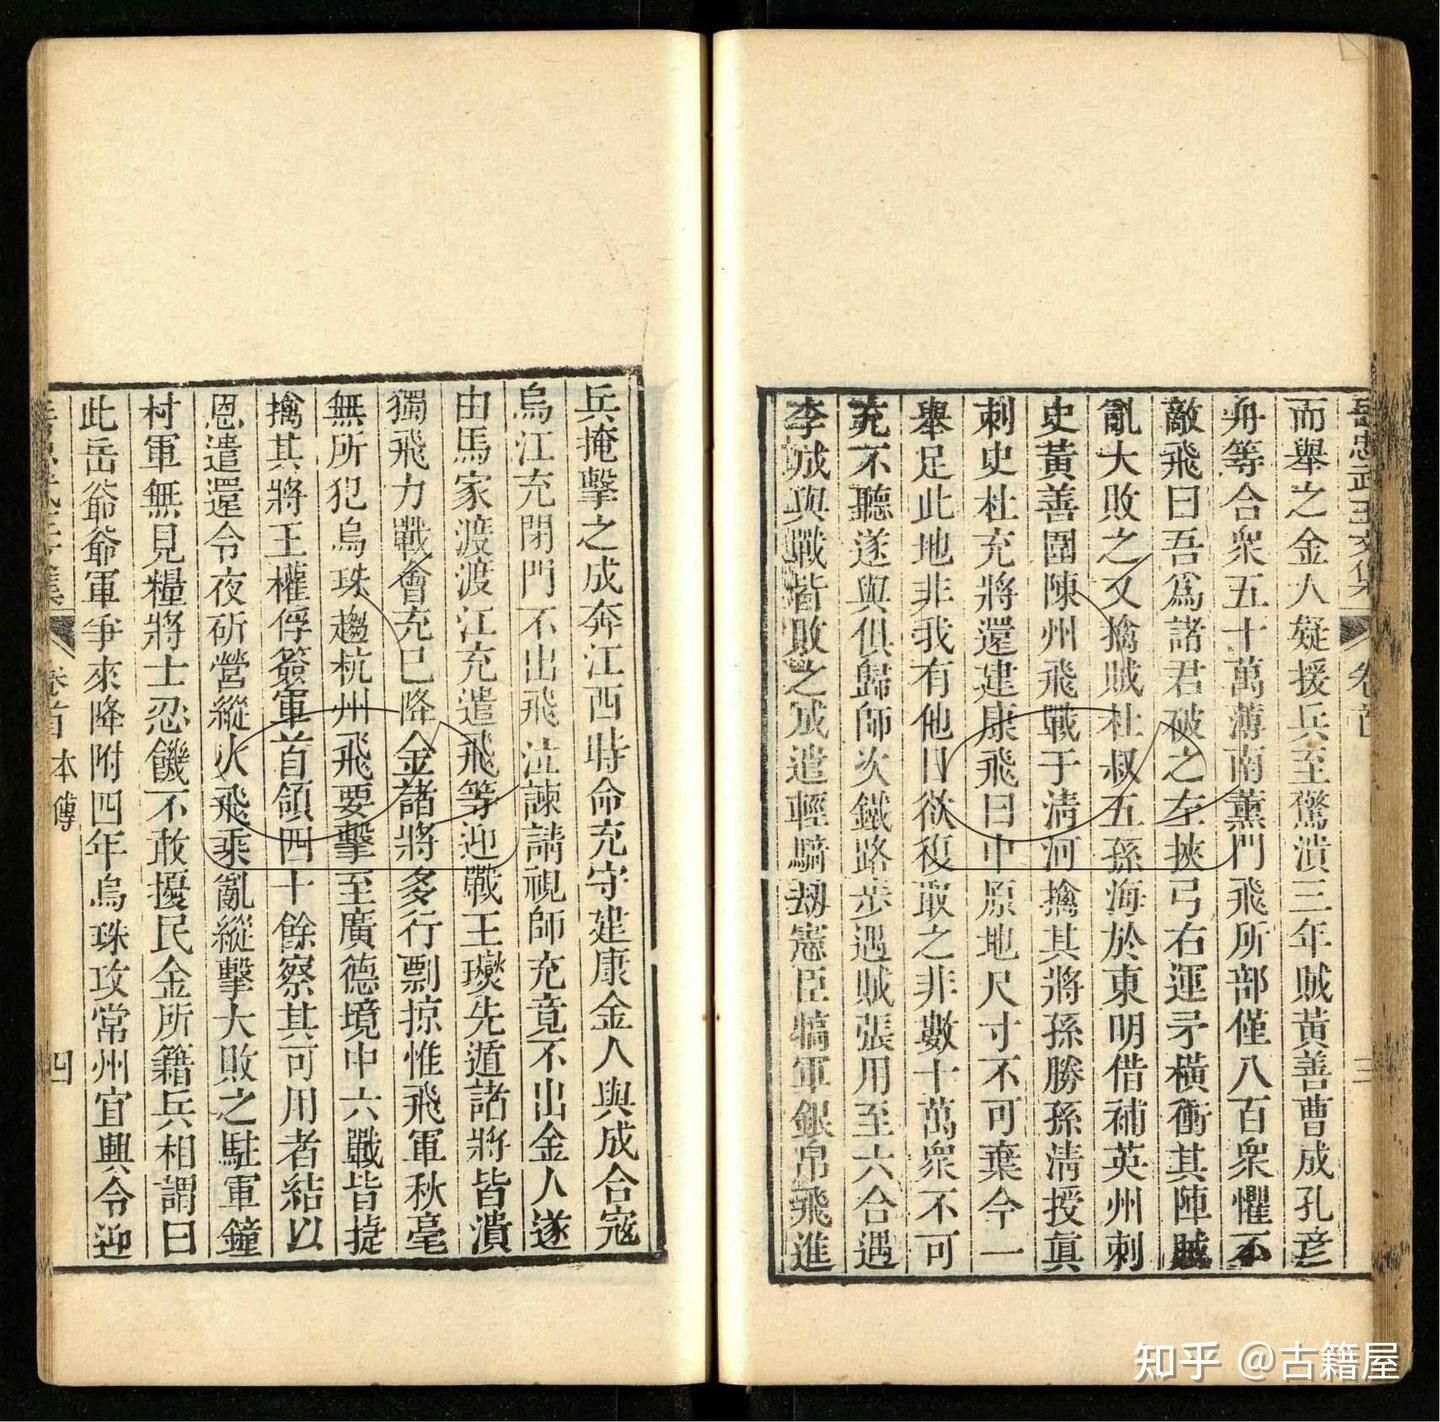 岳忠武王文集 卷首 三
而舉之金人疑援兵至驚潰三年賊黃善曹成孔彦
舟等合衆五十萬薄南薰門飛所部僅八百衆懼不
敵飛曰吾爲諸君破之左挾弓右運矛橫衝其陣賊
亂大敗之又擒賊杜叔五孫海於東明借補英州刺
史黃善圍陳州飛戰于淸河擒其將孫勝孫淸授眞
刺史杜充將還建康飛曰中原地尺寸不可棄今一
舉足此地非我有他日欲復取之非數十萬衆不可
充不聽遂與俱歸師次鐵路步遇賊張用至六合遇
李成與戰皆敗之成遣輕騎刼憲臣犒軍銀帛飛進
兵掩擊之成奔江西時命充守建康金人與成合寇
烏江充閉門不出飛泣諫請視師充竟不出金人遂
由馬家渡渡江充遣飛等迎戰王𤫉先遁諸將皆潰
獨飛力戰會充已降金諸將多行剽掠惟飛軍秋毫
無所犯烏珠趨杭州飛要擊至廣德境中六戰皆捷
擒其將王權俘簽軍首領四十餘察其可用者結以
恩遣還令夜斫營縱火飛乘亂縱擊大敗之駐軍鐘
村軍無見糧將士忍饑不敢擾民金所籍兵相謂曰
此岳爺爺軍爭來降附四年烏珠攻常州宜興令迎
岳忠武王文集 卷首 本傳 四
知乎 @古籍屋